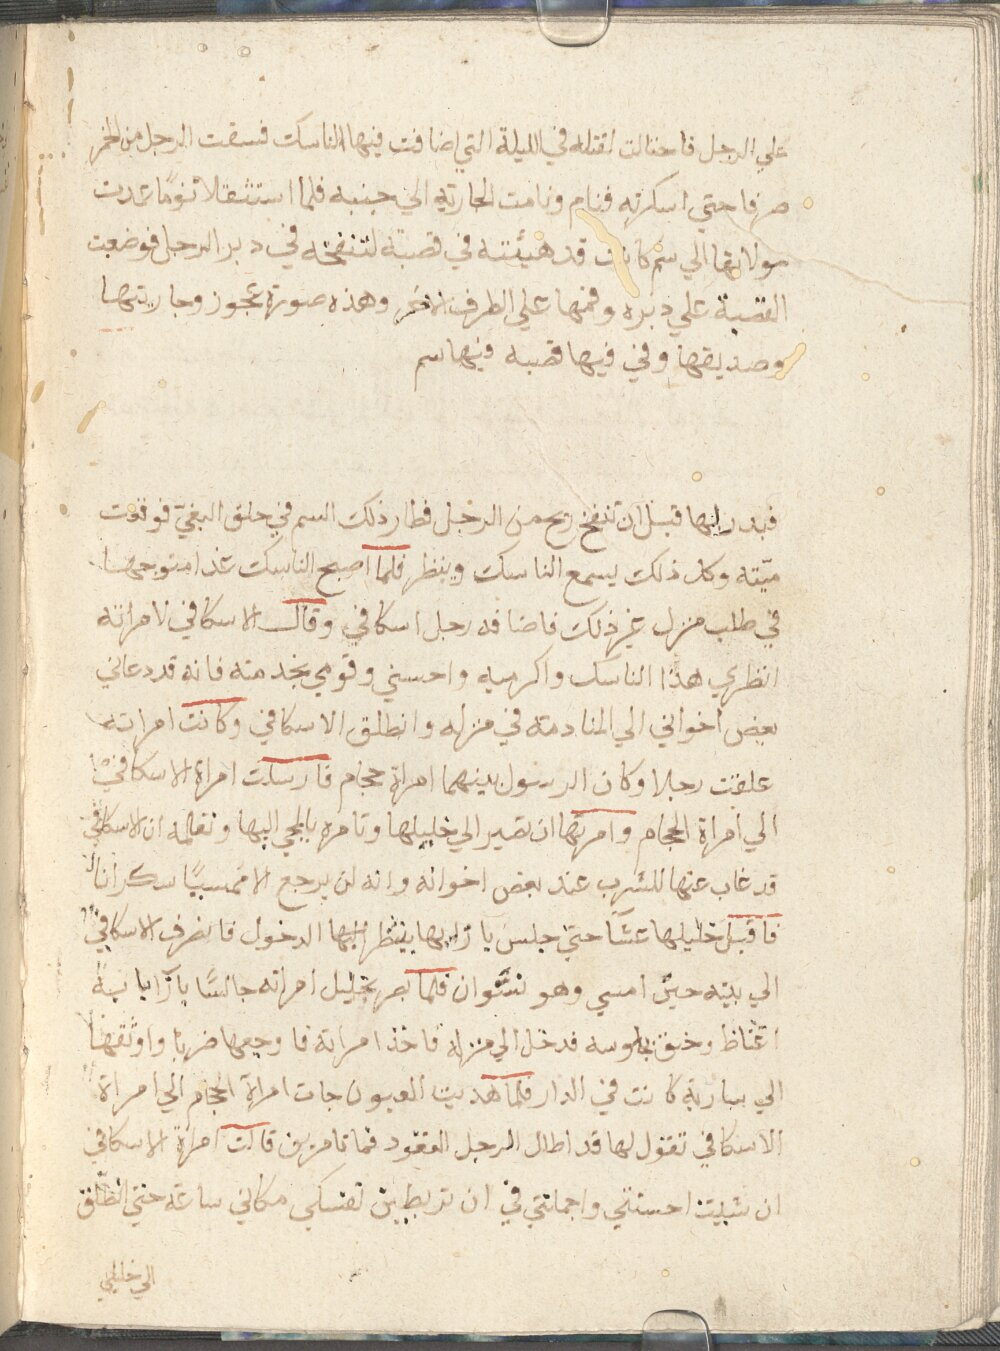 علي الرجل فاحتالت لقتله في الليلة التي اضافت فيها الناسك فسقت الرجل من الخمر
صرفا حتي اسكرته فنام ونامت الجاريه الي جنبه فلما استثقلا نوما عمدت
مولاتها الي سم كانت قد هيئته في قصبة لتنفخه في دبر الرجل فوضعت
القصبة علي دبره وفمها علي الطرف الاخر وهذه صورة عجوز وجاريتها
وصديقها وفي فيها قصبه فيها سم
فبدرلها قبل ان تنفخ ريح من الرجل فطار ذلك السم في حلق البغي فوقعت
ميته وكل ذلك يسمع الناسك وينظر فلما اصبح الناسك غدا متوجها
في طلب منزل غير ذلك فاضافه رجل اسكافي وقال الاسكافي لامراته
انظري هذا الناسك واكرميه واحسني وقومي بخدمته فانه قد دعاني
بعض اخواني الي المنادمة في منزله وانطلق الاسكافي وكانت امراته
علقت رجلا وكان الرسول بينهما امراة حجام فارسلت امراة الاسكافي
الي امراة الحجام وامرتها ان تصير الي خليلها وتامره بالمجي اليها وتعلمه ان الاسكافي
قد غاب عنها للشرب عند بعض اخوانه وانه لن يرجع الا ممسيا سكرانا
فاقبل خليلها عشا حتي جلس بازا بابها ينتظر الدخول فانصرف الاسكافي
الي بيته حين امسي وهو نشوان فلما بصر بخليل امراته جالسا بازا بابه
اغتاظ وخنق بجلوسه فدخل الي منزله فاخذ امراته فاوجعها ضربا واوثقها
الي سارية كانت في الدار فلما هديت العيون جات امراة الحجام الي امراة
الاسكافي تقول لها قد اطال الرجل القعود فما تامرين قالت امراة الاسكافي
ان شيت احسنتي واجملتي في ان تربطين نفسكي مكاني ساعة حتي انطلق
الي خليلي